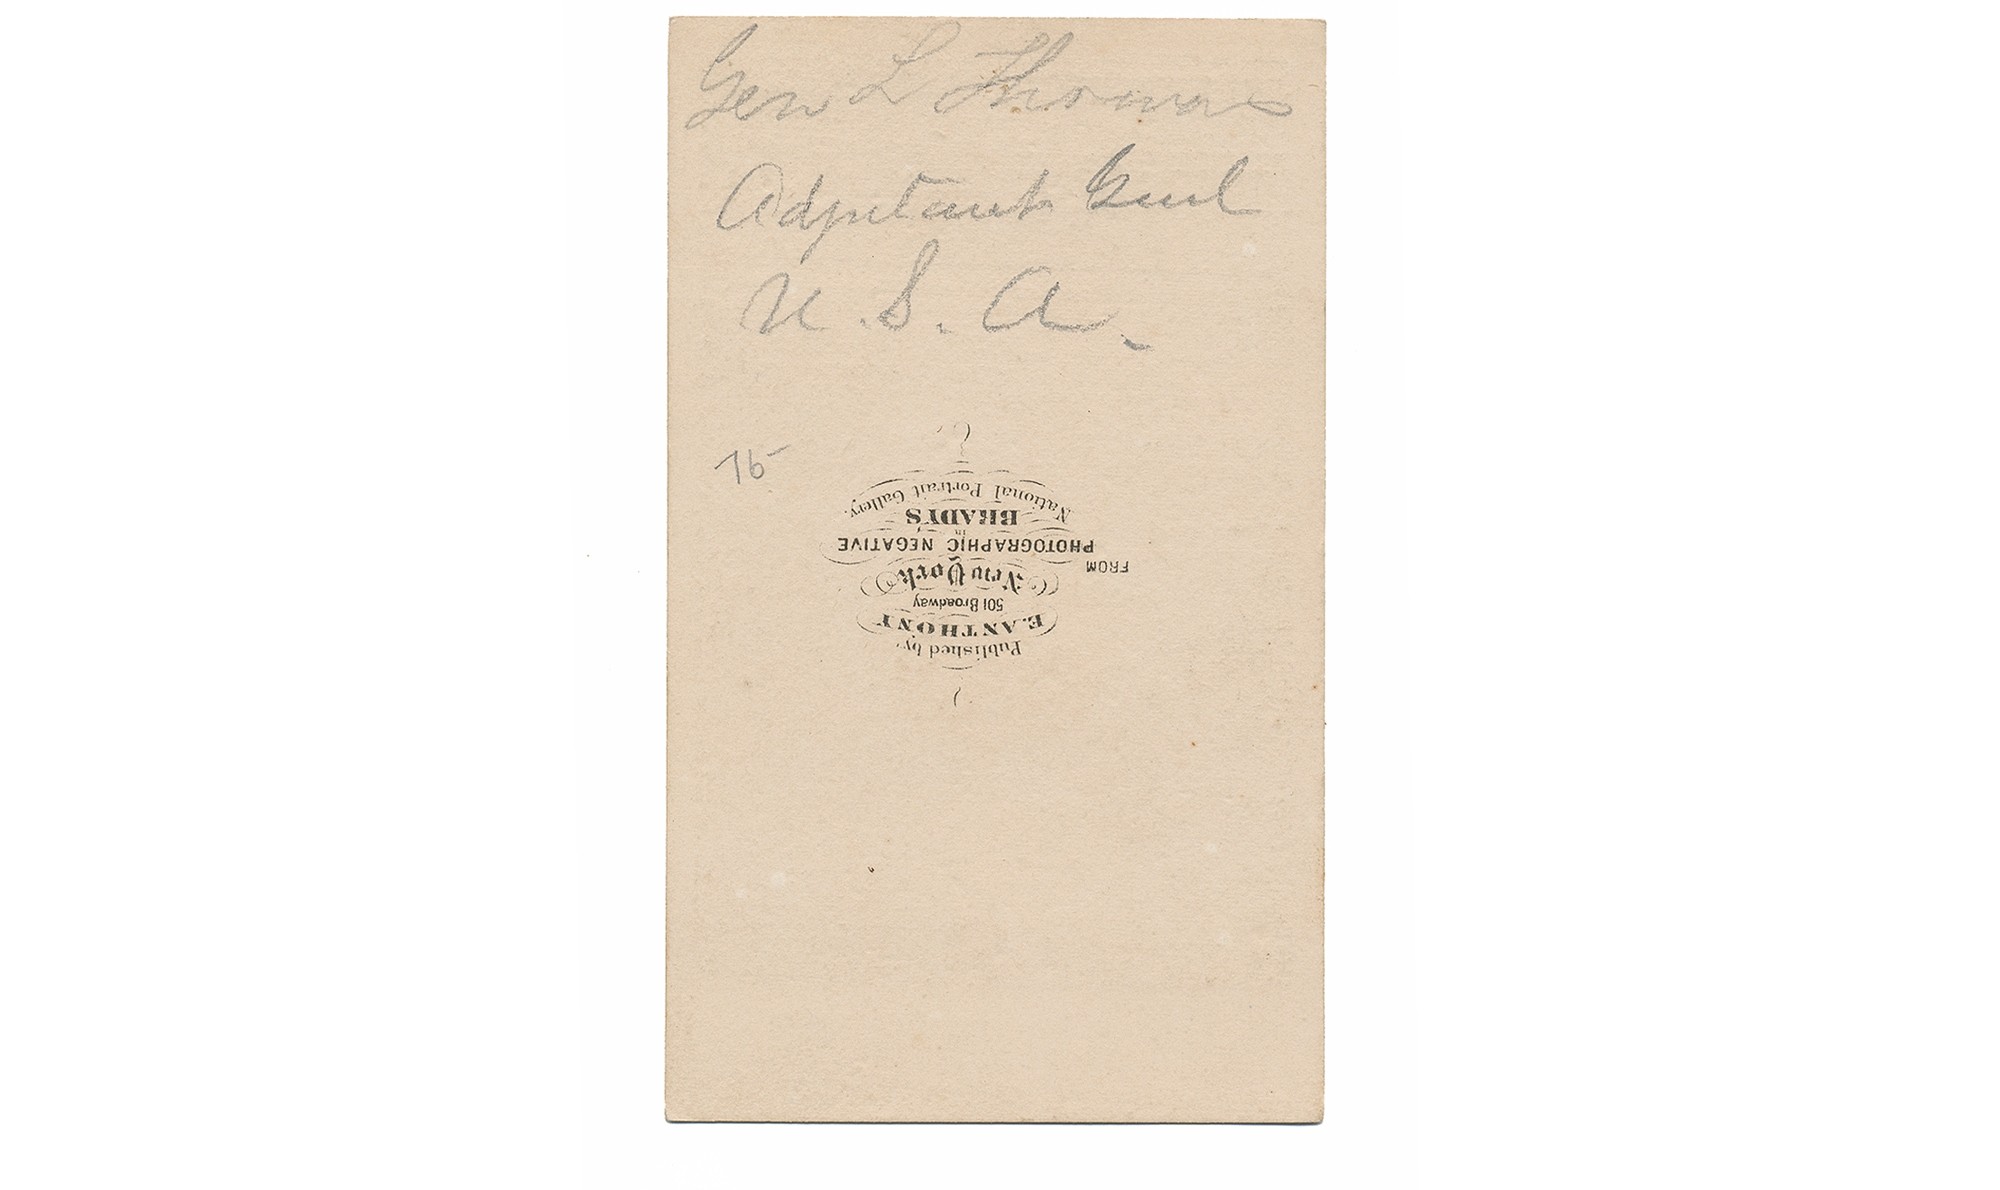 Gen L Thomas
Adjutant Genl
U.S.A.
75
Published by
E. ANTHONY
501 Broadway
New York
FROM
PHOTOGRAPHIC NEGATIVE
in
BRADY'S
National Portrait Gallery.